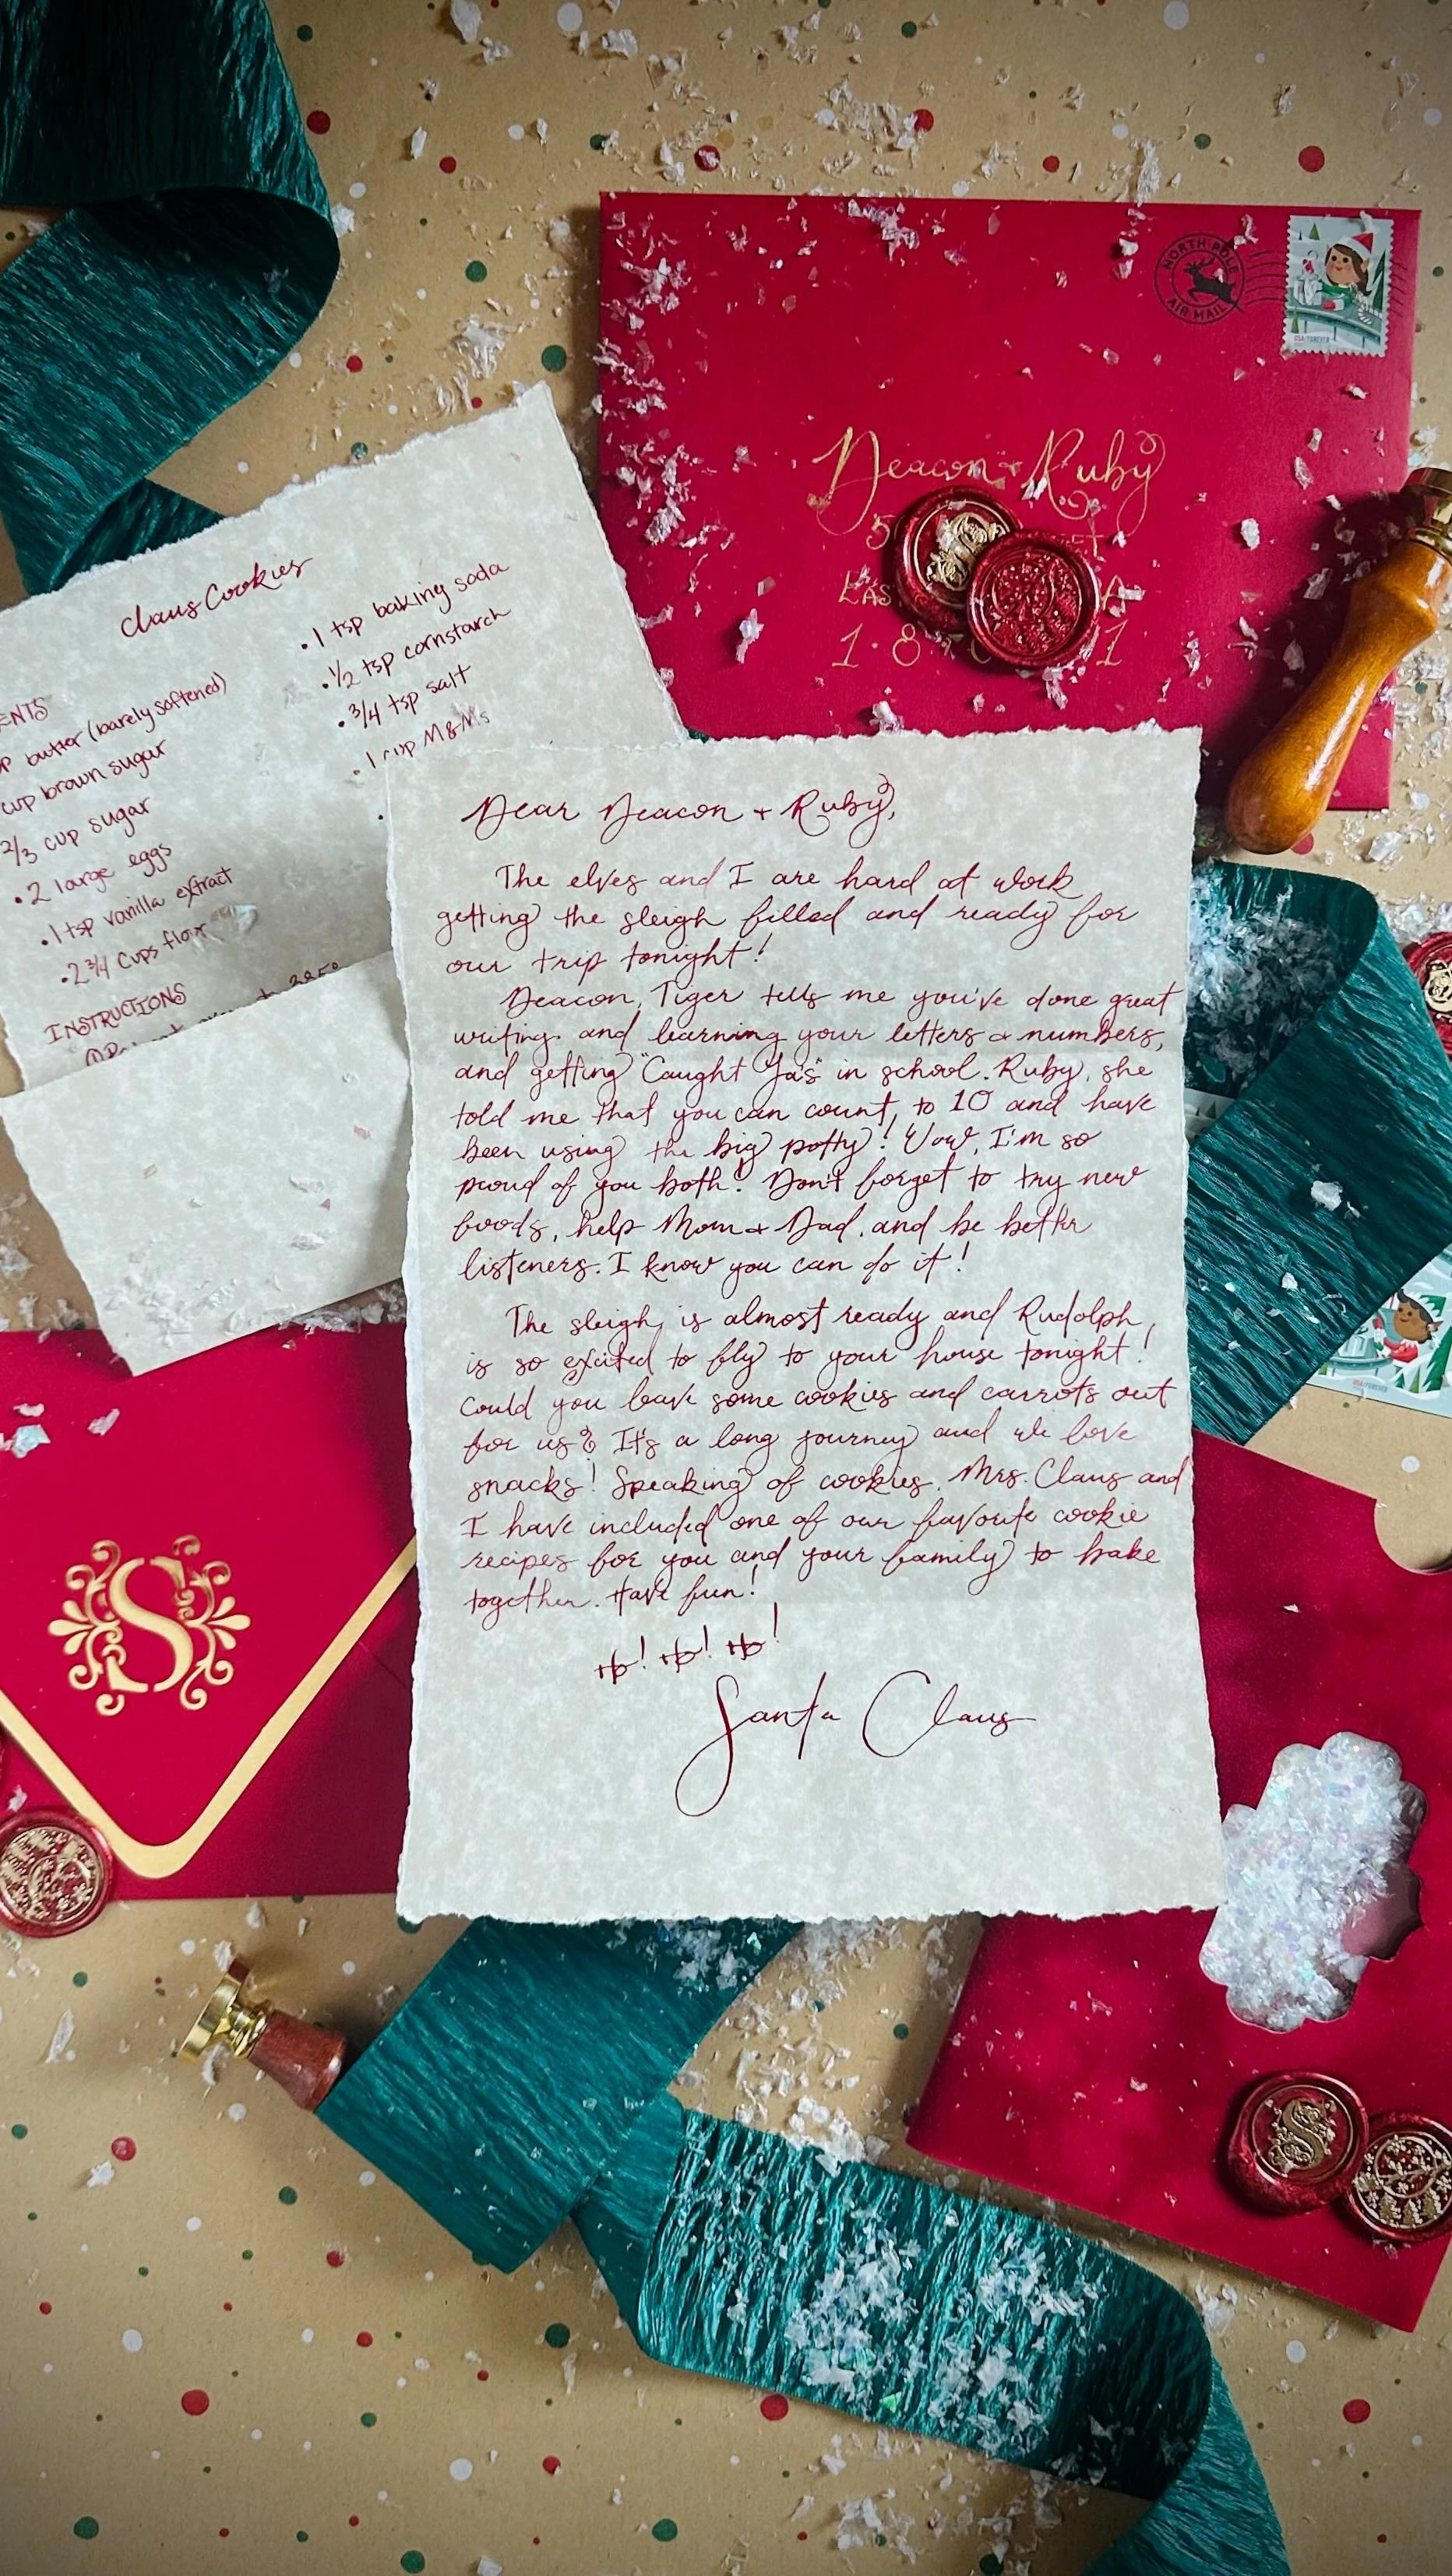 NORTH POLE
AIR MAIL
USA FOREVER
Deacon + Ruby
5
1·8
1
Claus Cookies
butter (barely softened)
cup brown sugar
2/3 cup sugar
• 2 large eggs
• 1 tsp vanilla extract
• 2 3/4 cups flour
• 1 tsp baking soda
• 1/2 tsp cornstarch
• 3/4 tsp salt
• 1 cup M&Ms
INSTRUCTIONS
Dear Deacon + Ruby,
The elves and I are hard at work
getting the sleigh filled and ready for
our trip tonight!
Deacon, Tiger tells me you've done great
writing and learning your letters & numbers,
and getting "Caught Ya's" in school. Ruby, she
told me that you can count to 10 and have
been using the big potty! Wow, I'm so
proud of you both! Don't forget to try new
foods, help Mom & Dad, and be better
listeners. I know you can do it!
The sleigh is almost ready and Rudolph
is so excited to fly to your house tonight!
Could you leave some cookies and carrots out
for us? It's a long journey and we love
snacks! Speaking of cookies, Mrs. Claus and
I have included one of our favorite cookie
recipes for you and your family to bake
together. Have fun!
Ho! Ho! Ho!
Santa Claus
S
S